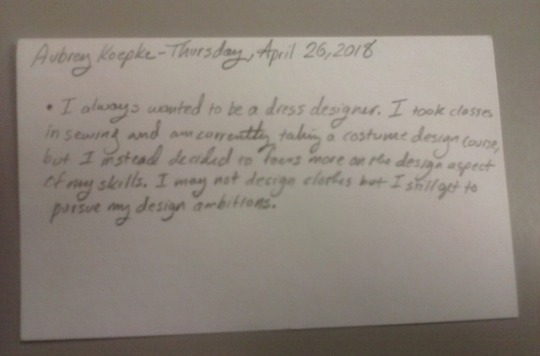 Aubrey Koepke - Thursday, April 26, 2018
• I always wanted to be a dress designer. I took classes
in sewing and am currently taking a costume design course,
but I instead decided to focus more on the design aspect
of my skills. I may not design clothes but I still get to
pursue my design ambitions.